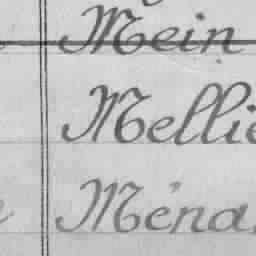 Mein
Mellie
Ména